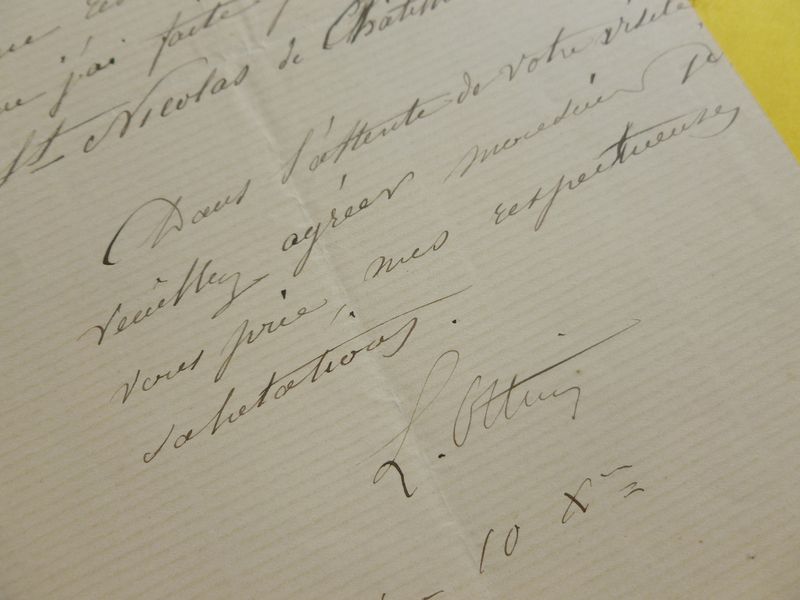 j'ai faite
St Nicolas de Châtill
Dans l'attente de votre visite
veuillez agréer monsieur je
vous prie, mes respectueuses
salutations.
L. Ottin
10 Xre